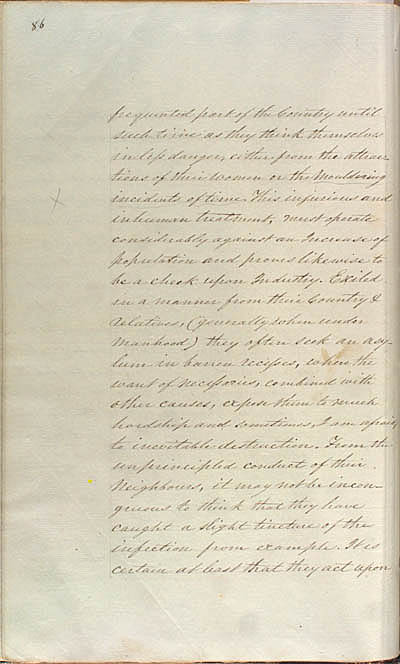 86
frequented part of the Country until
such time as they think themselves
in less danger, either from the attrac-
tions of their women or the Mouldering
incidents of time. This injurious and
inhuman treatment, must operate
considerably against an Increase of
population and proves likewise to
be a check upon Industry. Exiled
in a manner from their Country &
relatives, (generally when under
Manhood) they often seek an asy-
lum in barren recesses, where the
want of necessaries, combined with
other causes, expose them to much
hardship and sometimes, I am afraid,
to inevitable destruction. From the
unprincipled conduct of their
Neighbours, it may not be incon-
gruous to think that they have
caught a slight tincture of the
infection from example. It is
certain at least that they act upon